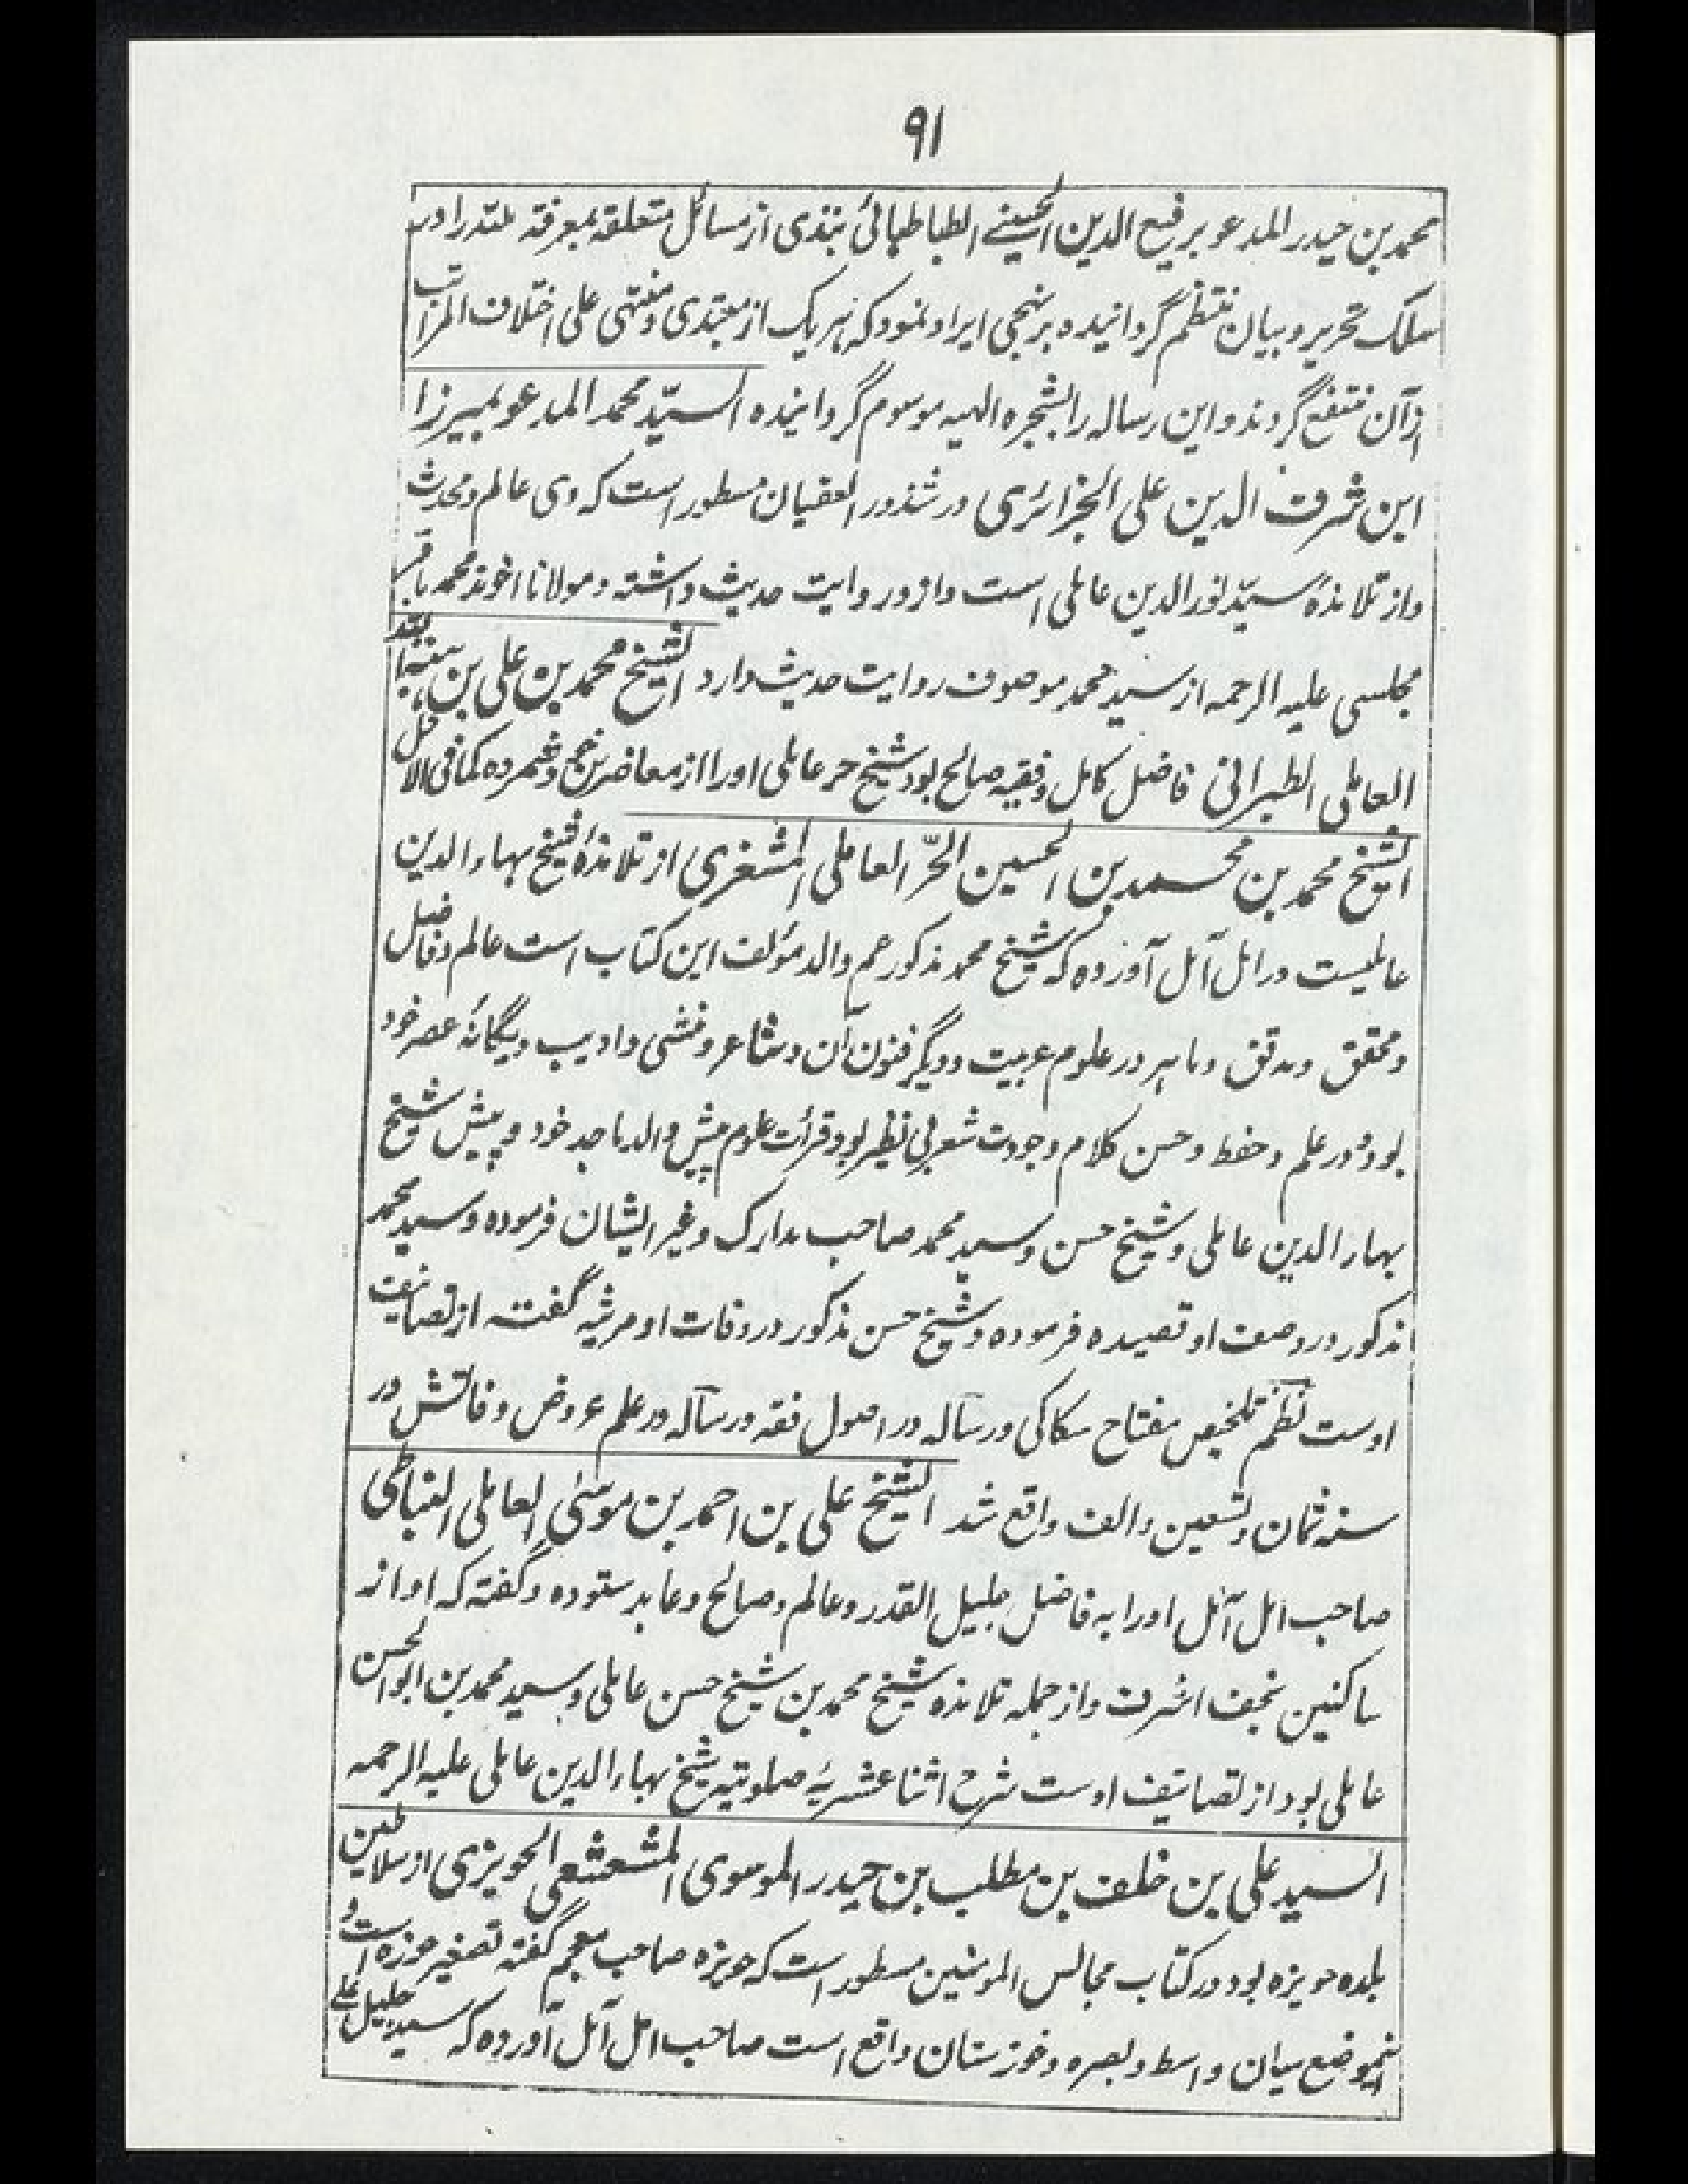 ٩١
محمد بن حیدر المدعو برفیع الدین الحسینی الطباطبائی نبذی از مسائل متعلقه بمعرفة الله را در
سلک تحریر و بیان منتظم گردانیده بر نهجی ایراد نمود که هر یک از مبتدی و منتهی علی اختلاف المراتب
از آن منتفع گردند و این رساله را بشجره الهیه موسوم گردانیده السیّد محمد المدعو بمیرزا
ابن شرف الدین علی الجزائری در شذور العقیان مسطور است که وی عالم و محدث
و از تلامذهٔ سیّد نور الدین عاملی است و ازو روایت حدیث داشته و مولانا اخوند محمد باقر
مجلسی علیه الرحمه از سید محمد موصوف روایت حدیث دارد الشیخ محمد بن علی بن
العاملی الطبرانی فاضل کامل و فقیه صالح بود شیخ حر عاملی او را از معاصرین خود شمرده کما فی الامل
الشیخ محمد بن محمد بن الحسین الحرّ العاملی المشغری از تلامذهٔ شیخ بهاء الدین
عاملیست در امل آمل آورده که شیخ محمد مذکور عم والد مؤلف این کتاب است عالم و فاضل
و محقق و مدقق و ماهر در علوم عربیت و دیگر فنون آن و شاعر و منشی و ادیب و یگانهٔ عصر خود
بود و در علم و حفظ و حسن کلام و جودت شعر بی نظیر بود قرأت علوم پیش والد ماجد خود و پیش شیخ
بهاء الدین عاملی و شیخ حسن و سید محمد صاحب مدارک و غیر ایشان فرموده و سید محمد
مذکور در وصف او قصیده فرموده و شیخ حسن مذکور در وفات او مرثیه گفته از تصانیف
اوست نظم تلخیص مفتاح سکاکی و رساله در اصول فقه و رساله در علم عروض وفاتش در
سنه ثمان و تسعین و الف واقع شد الشیخ علی بن احمد بن موسیٰ العاملی النباطی
صاحب امل آمل او را به فاضل جلیل القدر و عالم و صالح و عابد ستوده و گفته که او از
ساکنین نجف اشرف و از جمله تلامذه شیخ محمد بن شیخ حسن عاملی و سید محمد بن ابو الحسن
عاملی بود از تصانیف اوست شرح اثنا عشریهٔ صلوتیه شیخ بهاء الدین عاملی علیه الرحمه
السید علی بن خلف بن مطلب بن حیدر الموسوی المشعشعی الحویزی از سلاطین
بلده حویزه بود در کتاب مجالس المومنین مسطور است که حویزه صاحب معجم گفته تصغیر حوزه است و
اینموضع میان واسط و بصره و خوزستان واقع است صاحب امل آمل آورده که سید جلیل علی